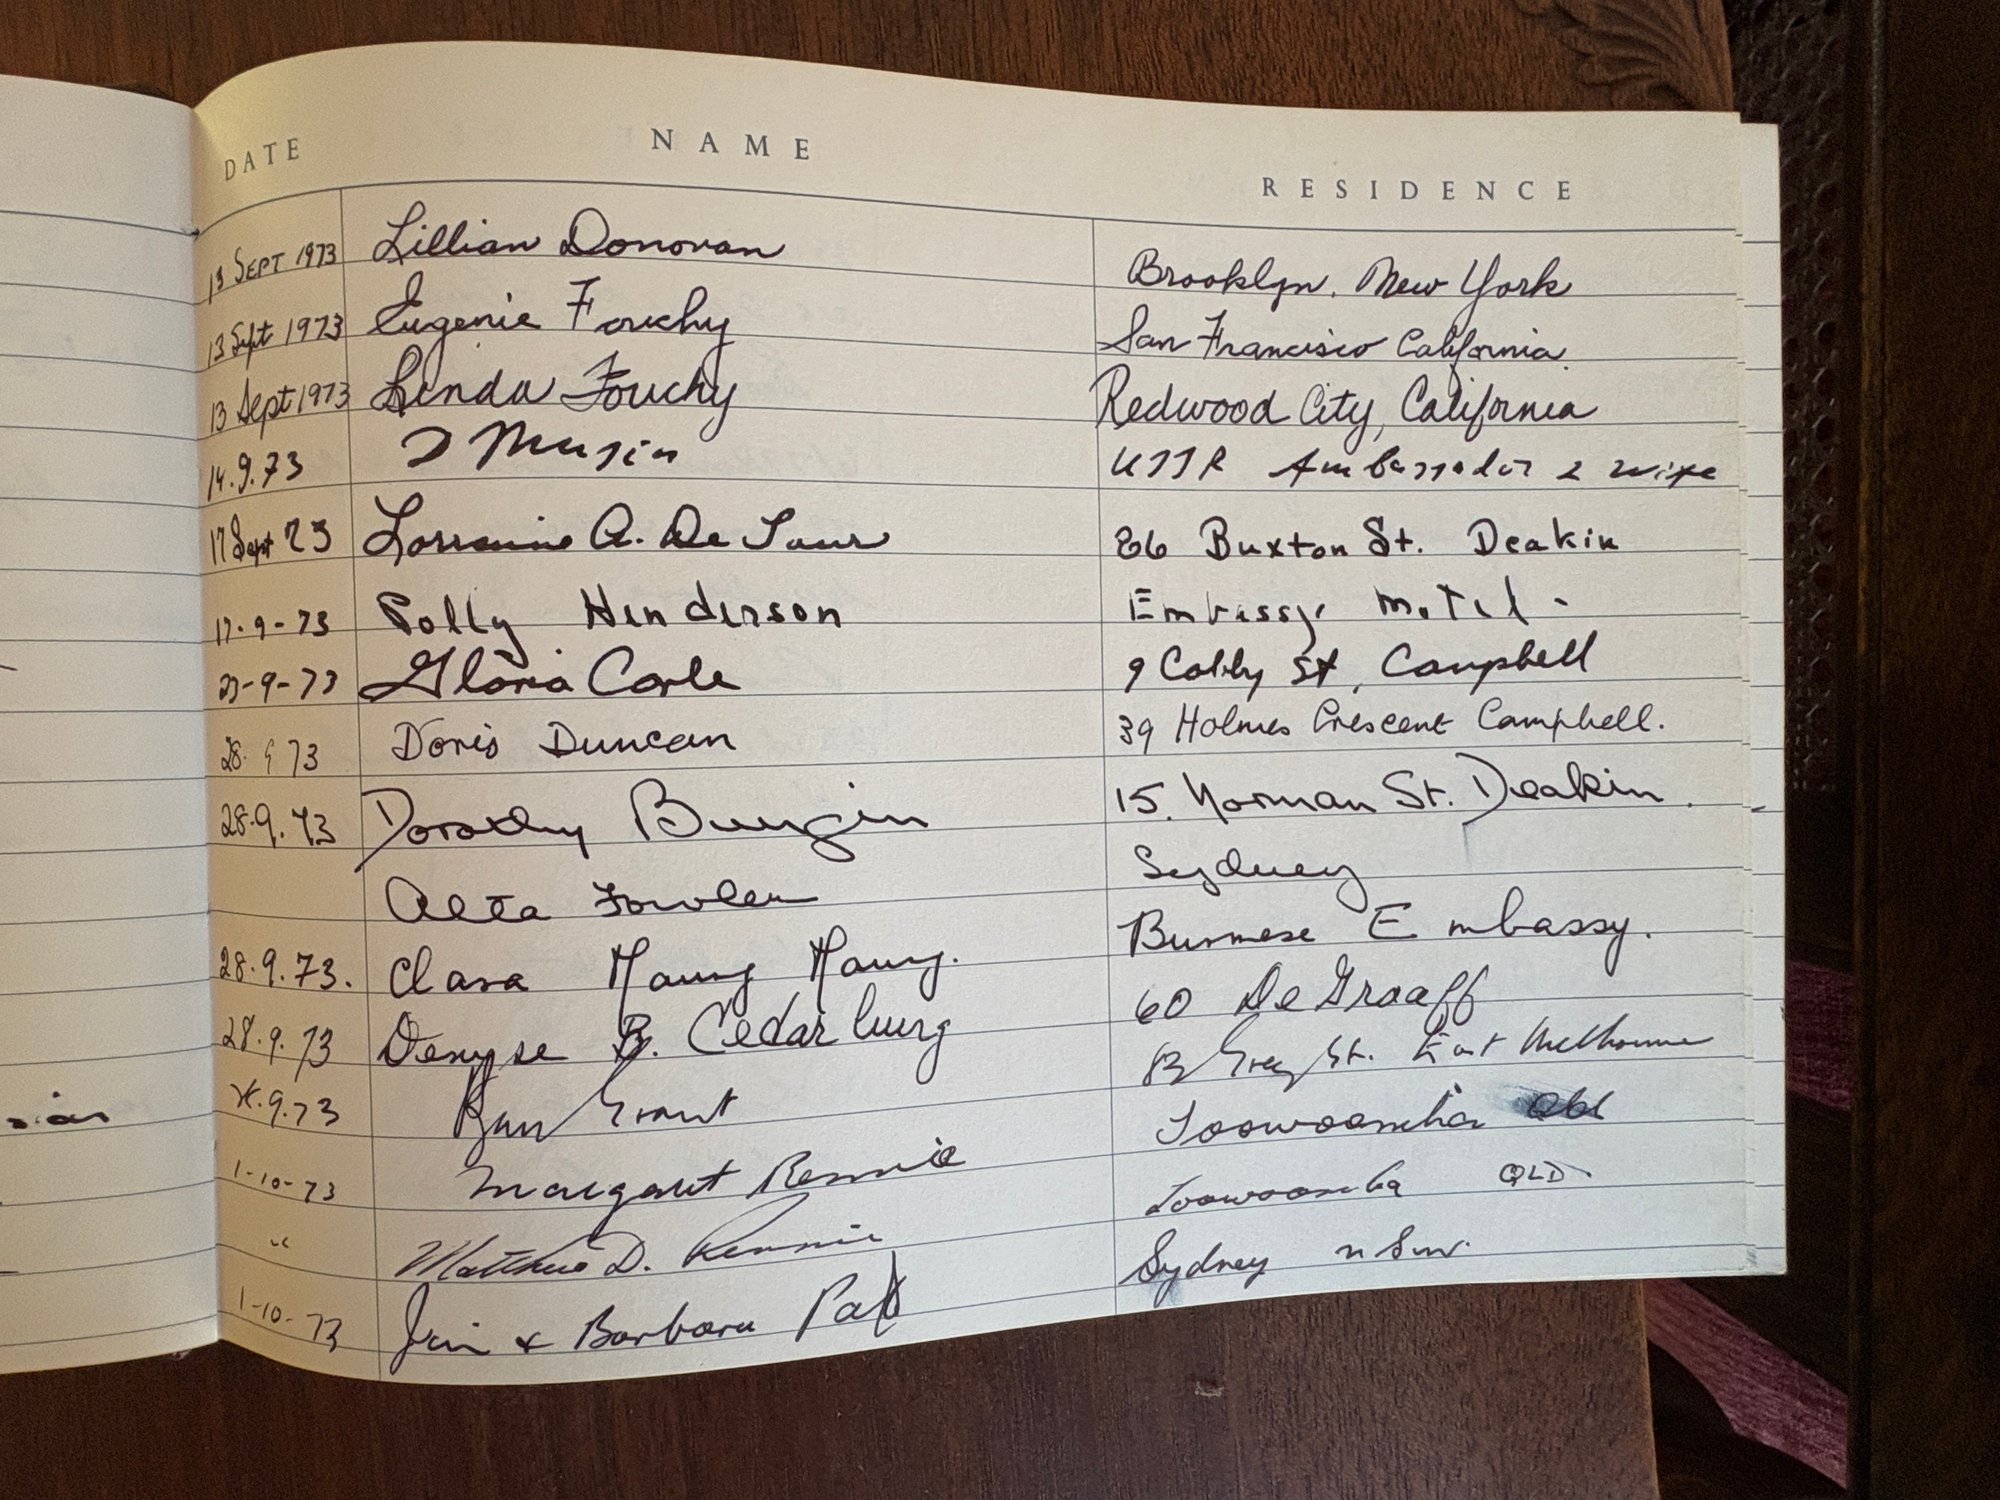 DATE NAME RESIDENCE
13 SEPT 1973 Lillian Donovan Brooklyn, New York
13 Sept 1973 Eugenie Fouchy San Francisco California
13 Sept 1973 Linda Fouchy Redwood City, California
14.9.73 Musin USSR Ambassador & wife
17 Sept 73 Lorraine A. De Sour 26 Buxton St. Deakin
17-9-73 Polly Henderson Embassy Motel -
9-73 Gloria Carle 9 Cobby St, Campbell
28. 9 73 Doris Duncan 39 Holmes Crescent Campbell.
28.9.73 Dorothy 15. Norman St. Deakin.
Alta Fowler Sydney
28.9.73. Clara Maung Maung. Burmese Embassy.
28.9.73 Denyse B. Cedarburg 60 De Graaff
.9.73 Grant Grey St. East Melbourne
1-10-73 Margaret Rennie Toowoomba Qld
" Matthew D. Rennie Toowoomba QLD.
1-10-73 Jim & Barbara Sydney N.S.W.